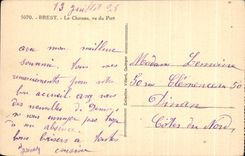 13 Juillet 28
5070. - BREST. - Le Chateau, vu du Port
avec mon meilleur
souvenir. Tous nos
remerciements pour votre
bon accueil
des nouvelles de
ne vous ennuyez pas trop
en son absence.
bons baisers à toutes
cousine
Madame Lemoine
50 rue Clémenceau 50
Dinan
Côtes du Nord